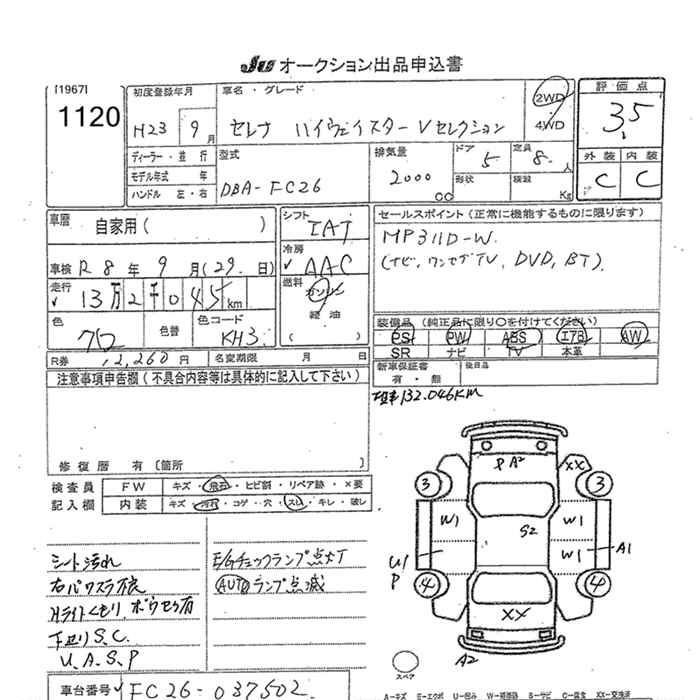 JU オークション出品申込書
[1967]
1120
初度登録年月
H23 9月
車名・グレード
セレナ ハイウェイスター Vセレクション
2WD
4WD
評価点
3.5
外装 内装
C C
ディーラー・並行
モデル年式 年
ハンドル 左・右
型式
DBA-FC26
排気量
2000 CC
ドア
5
形状
定員
8人
積載
Kg
車歴
自家用( )
車検 R8年 9月(29日)
走行
13万2千045km
色
クロ
色替
色コード
KH3
シフト
IAT
冷房
AAC
燃料
ガソリン
軽油
( )
セールスポイント(正常に機能するものに限ります)
MP311D-W
(ナビ,ワンセグTV,DVD,BT).
装備品(純正品に限り○を付けてください)
PS PW ABS エアB AW
SR ナビ TV 本革
R券 12,260円
名変期限 月 日
新車保証書
有・無
後日品
注意事項申告欄(不具合内容等は具体的に記入して下さい)
132.046KM
修復歴 有〔箇所
検査員
記入欄
FW キズ・飛石・ヒビ割・リペア跡・×要
内装 キズ・汚れ・コゲ・穴・スレ・キレ・破レ
シート汚れ
右パワスラ不良
Hライトくもり、ボウセイ有
下廻りS.C.
U.A.S.P
E/Gチェックランプ点灯
AUTOランプ点滅
P A2
XX
3 3
W1 W1
S2
W1 A1
U1
P
4 4
XX
A2
スペア
車台番号 FC26-037502
A-キズ E-エクボ U-凹み W-補修跡 S-サビ C-腐食 XX-交換済